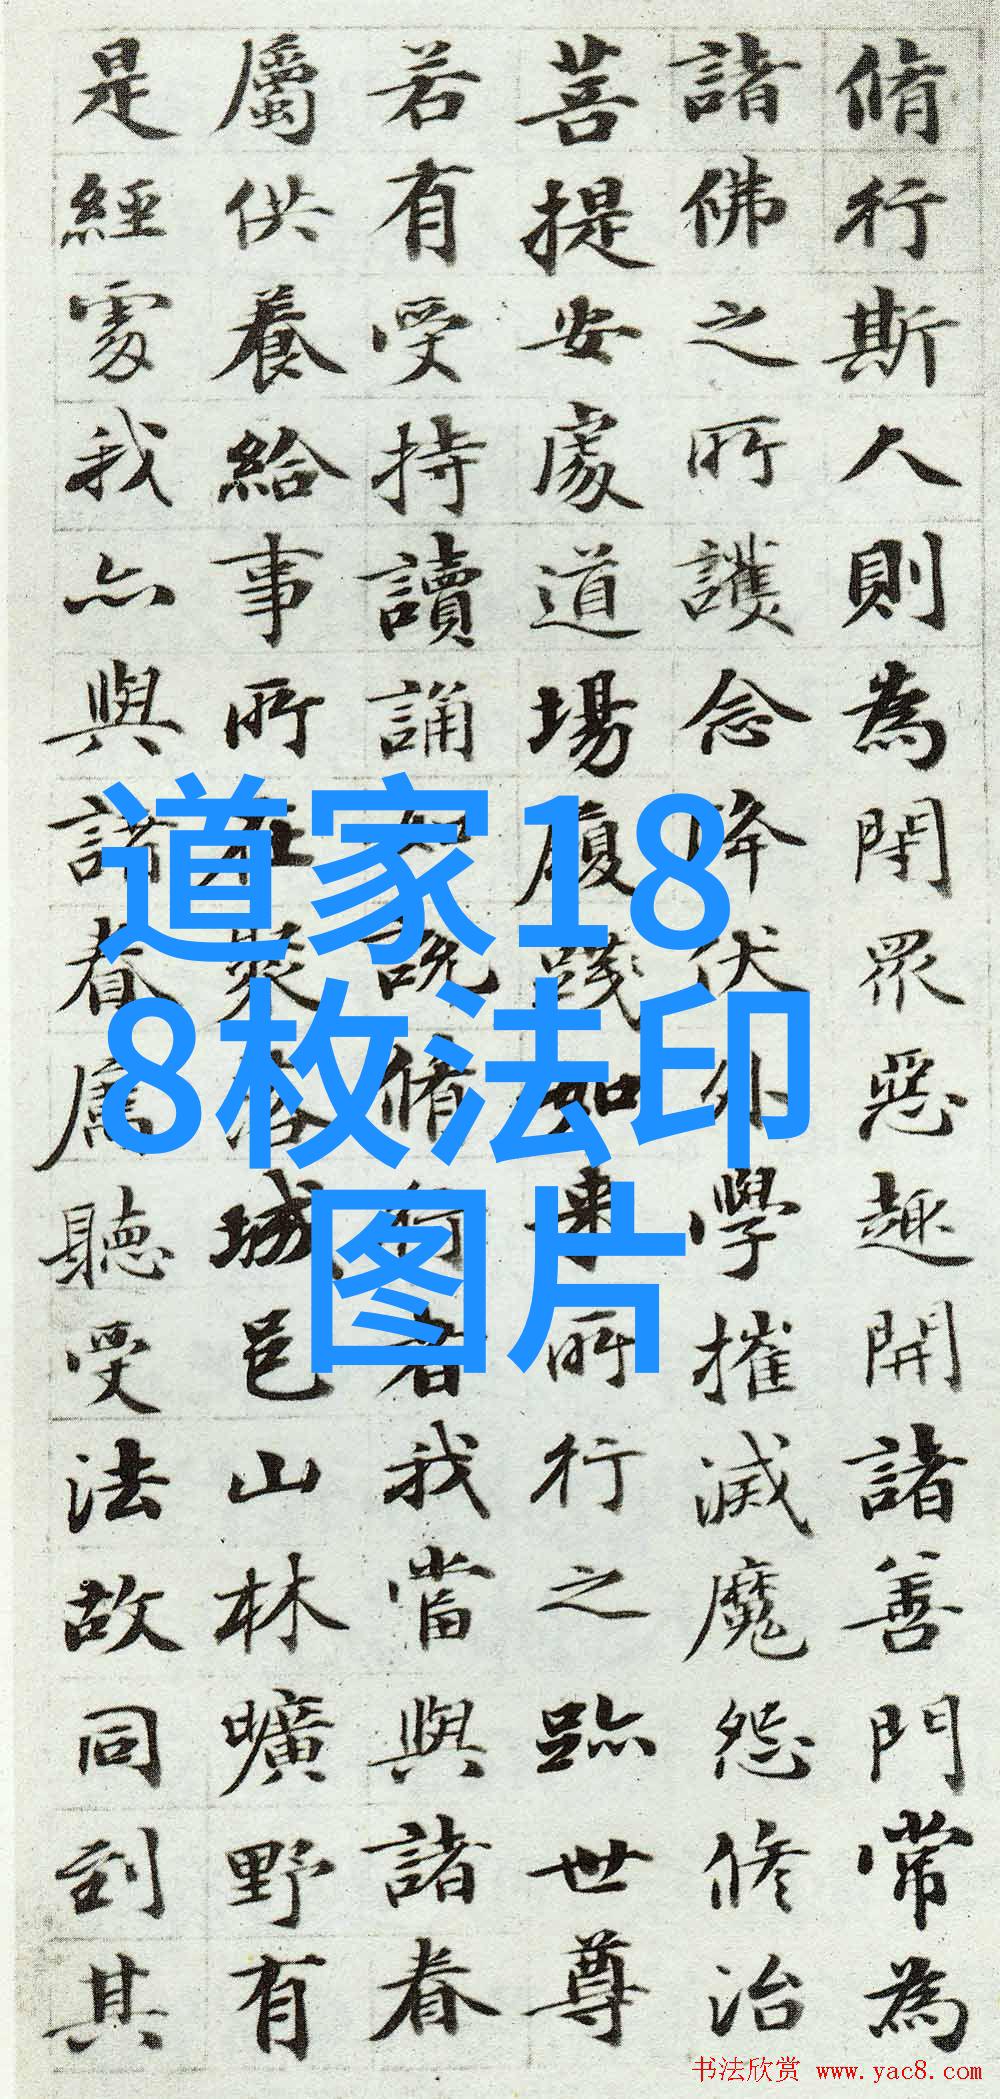 脩行斯人則為閇眾惡趣開諸善門常為
諸佛之所護念降伏外學摧滅魔怨修治
菩提安處道場履踐如来所行之跡世尊
若有受持讀誦如說脩行者我當與諸眷
屬供養給事所在聚落城邑山林曠野有
是經處我亦與諸眷屬聽受法故同到其
道家18
8枚法印
图片
书法欣赏 www.yac8.com